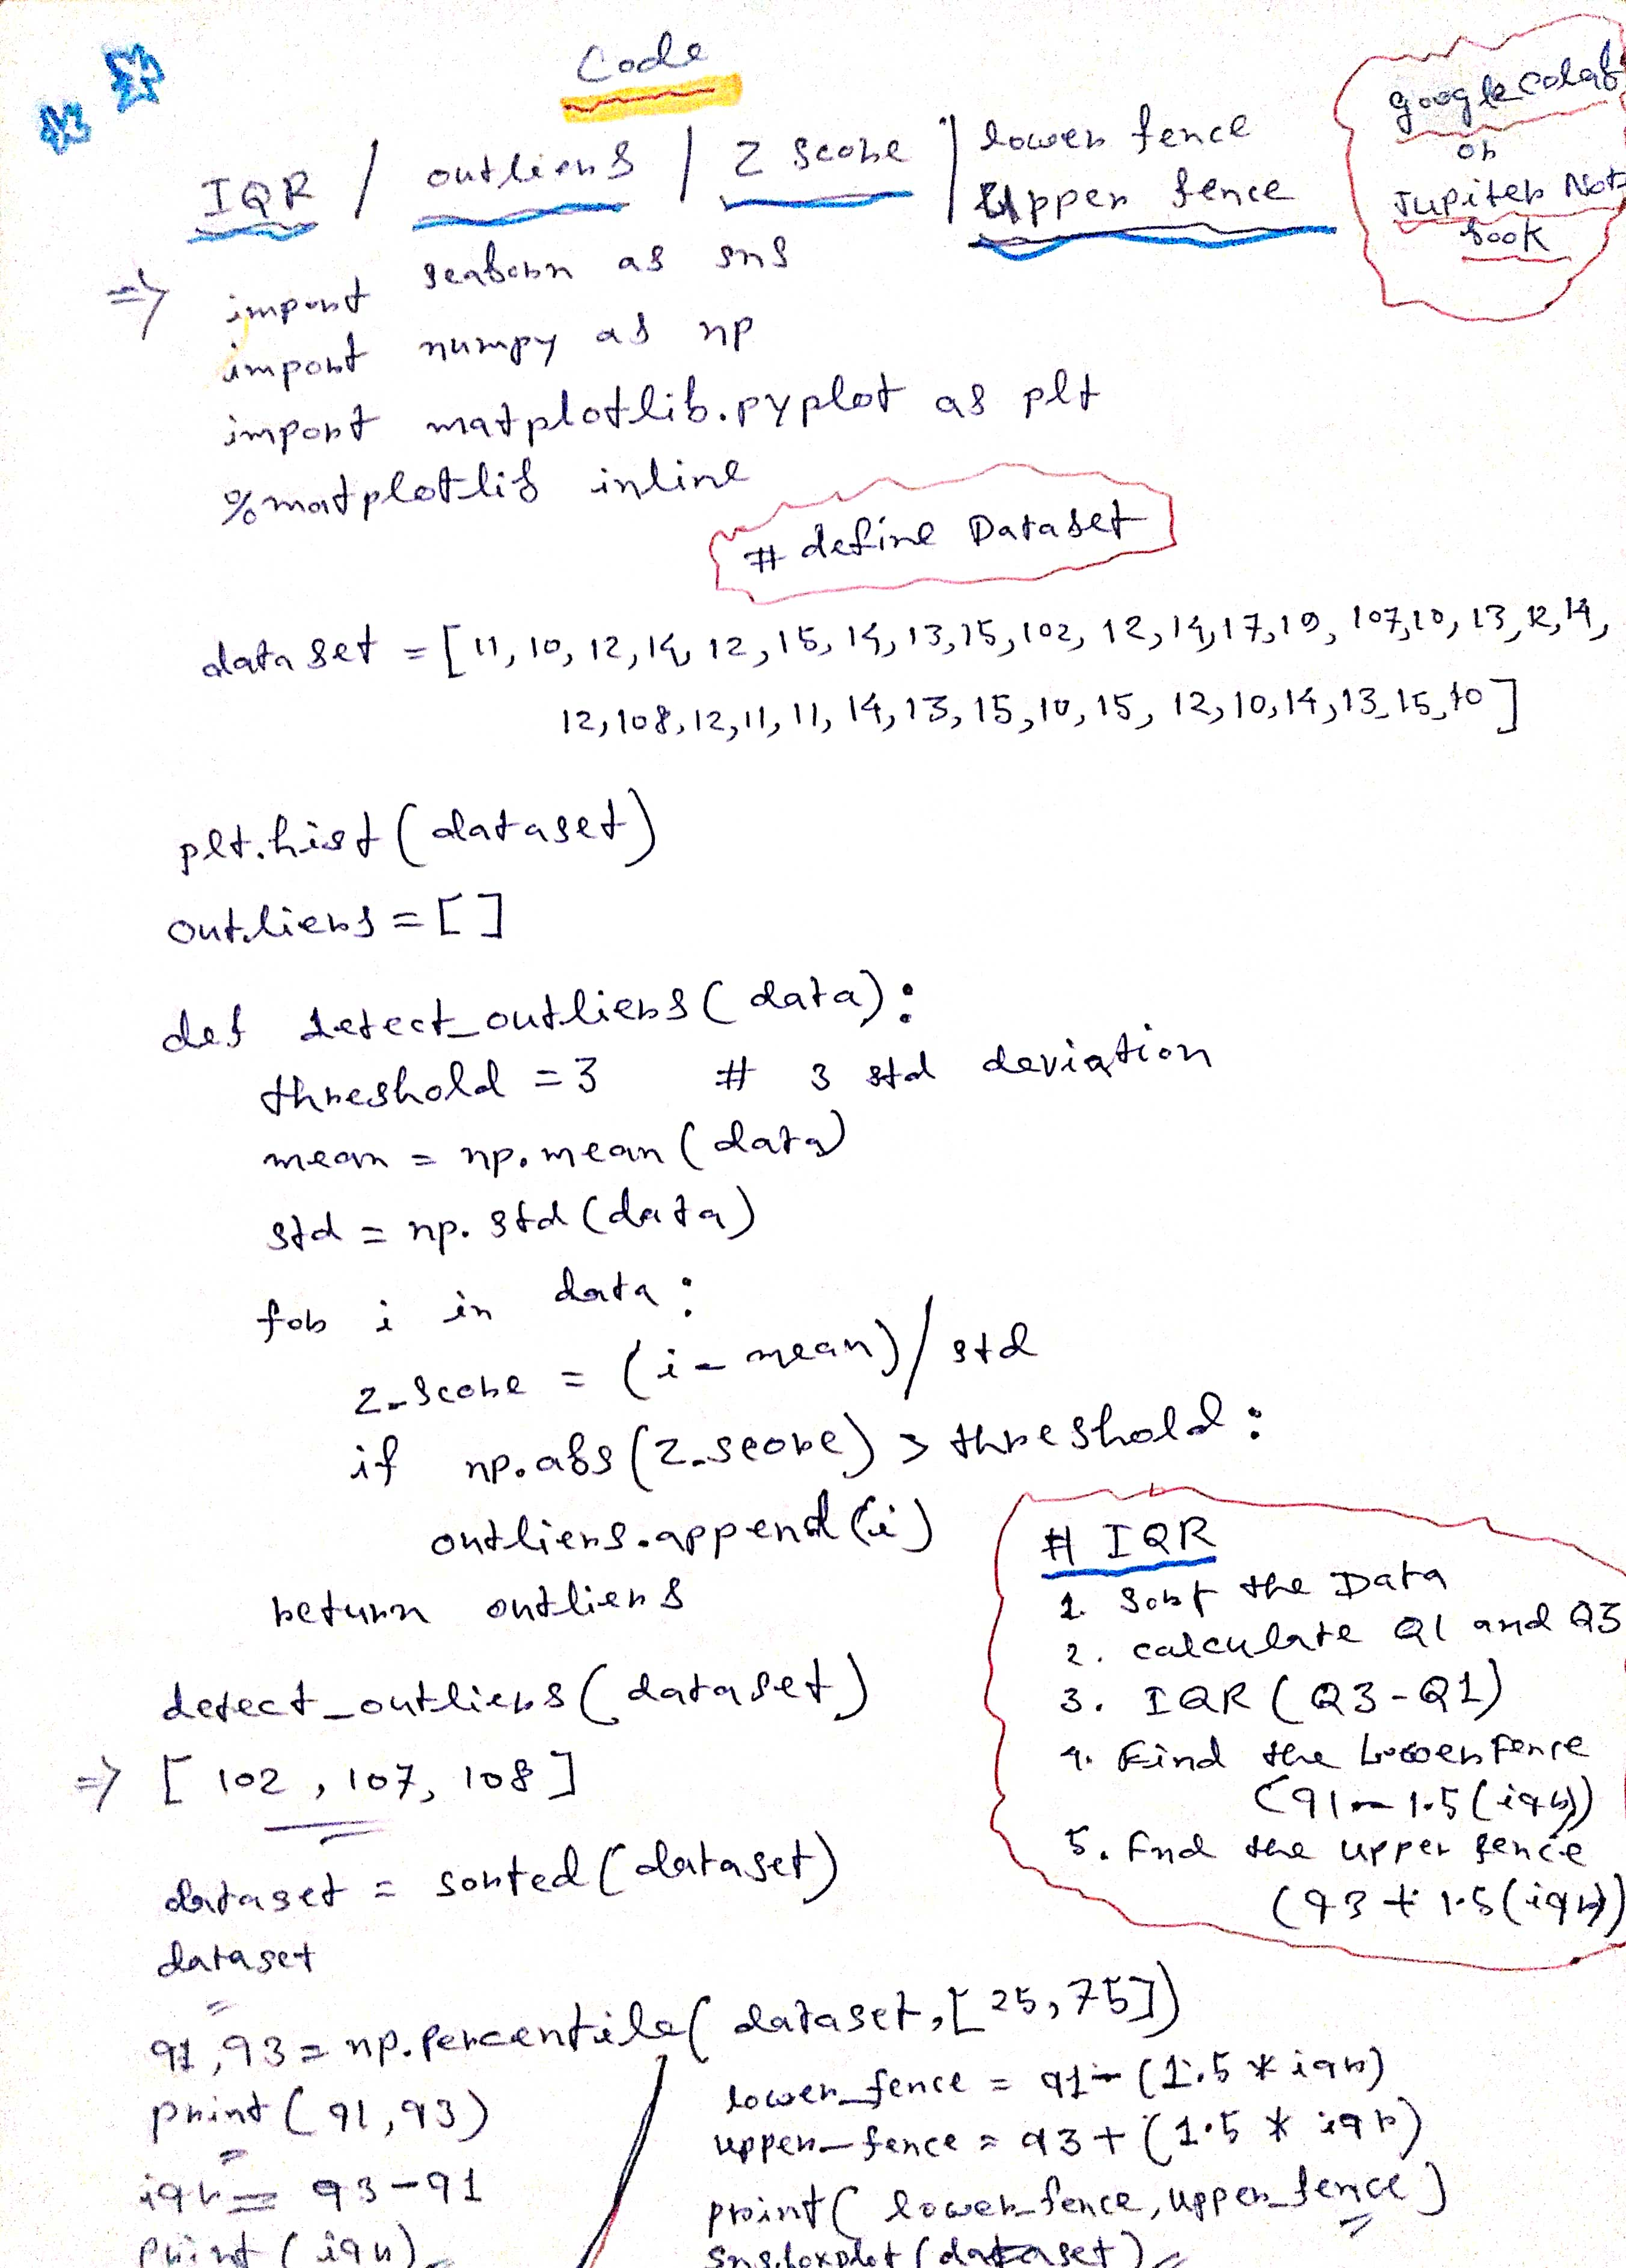 Code
google colab
or
Jupiter Note
book
IQR / outliers / Z score / lower fence
Upper fence
=> import seaborn as sns
import numpy as np
import matplotlib.pyplot as plt
%matplotlib inline
# define Dataset
dataset = [11, 10, 12, 14, 12, 15, 14, 13, 15, 102, 12, 14, 17, 19, 107, 10, 13, 12, 14,
12, 108, 12, 11, 11, 14, 13, 15, 10, 15, 12, 10, 14, 13, 15, 10]
plt.hist(dataset)
outliers = []
def detect_outliers(data):
threshold = 3 # 3 std deviation
mean = np.mean(data)
std = np.std(data)
for i in data:
z_score = (i - mean)/std
if np.abs(z_score) > threshold:
outliers.append(i)
return outliers
detect_outliers(dataset)
=> [102, 107, 108]
dataset = sorted(dataset)
dataset
# IQR
1. Sort the Data
2. calculate Q1 and Q3
3. IQR (Q3-Q1)
4. Find the Lower fence
(q1 - 1.5(iqr))
5. Find the upper fence
(q3 + 1.5(iqr))
q1, q3 = np.percentile(dataset, [25, 75])
print(q1, q3)
iqr = q3 - q1
print(iqr)
lower_fence = q1 - (1.5 * iqr)
upper_fence = q3 + (1.5 * iqr)
print(lower_fence, upper_fence)
sns.boxplot(dataset)